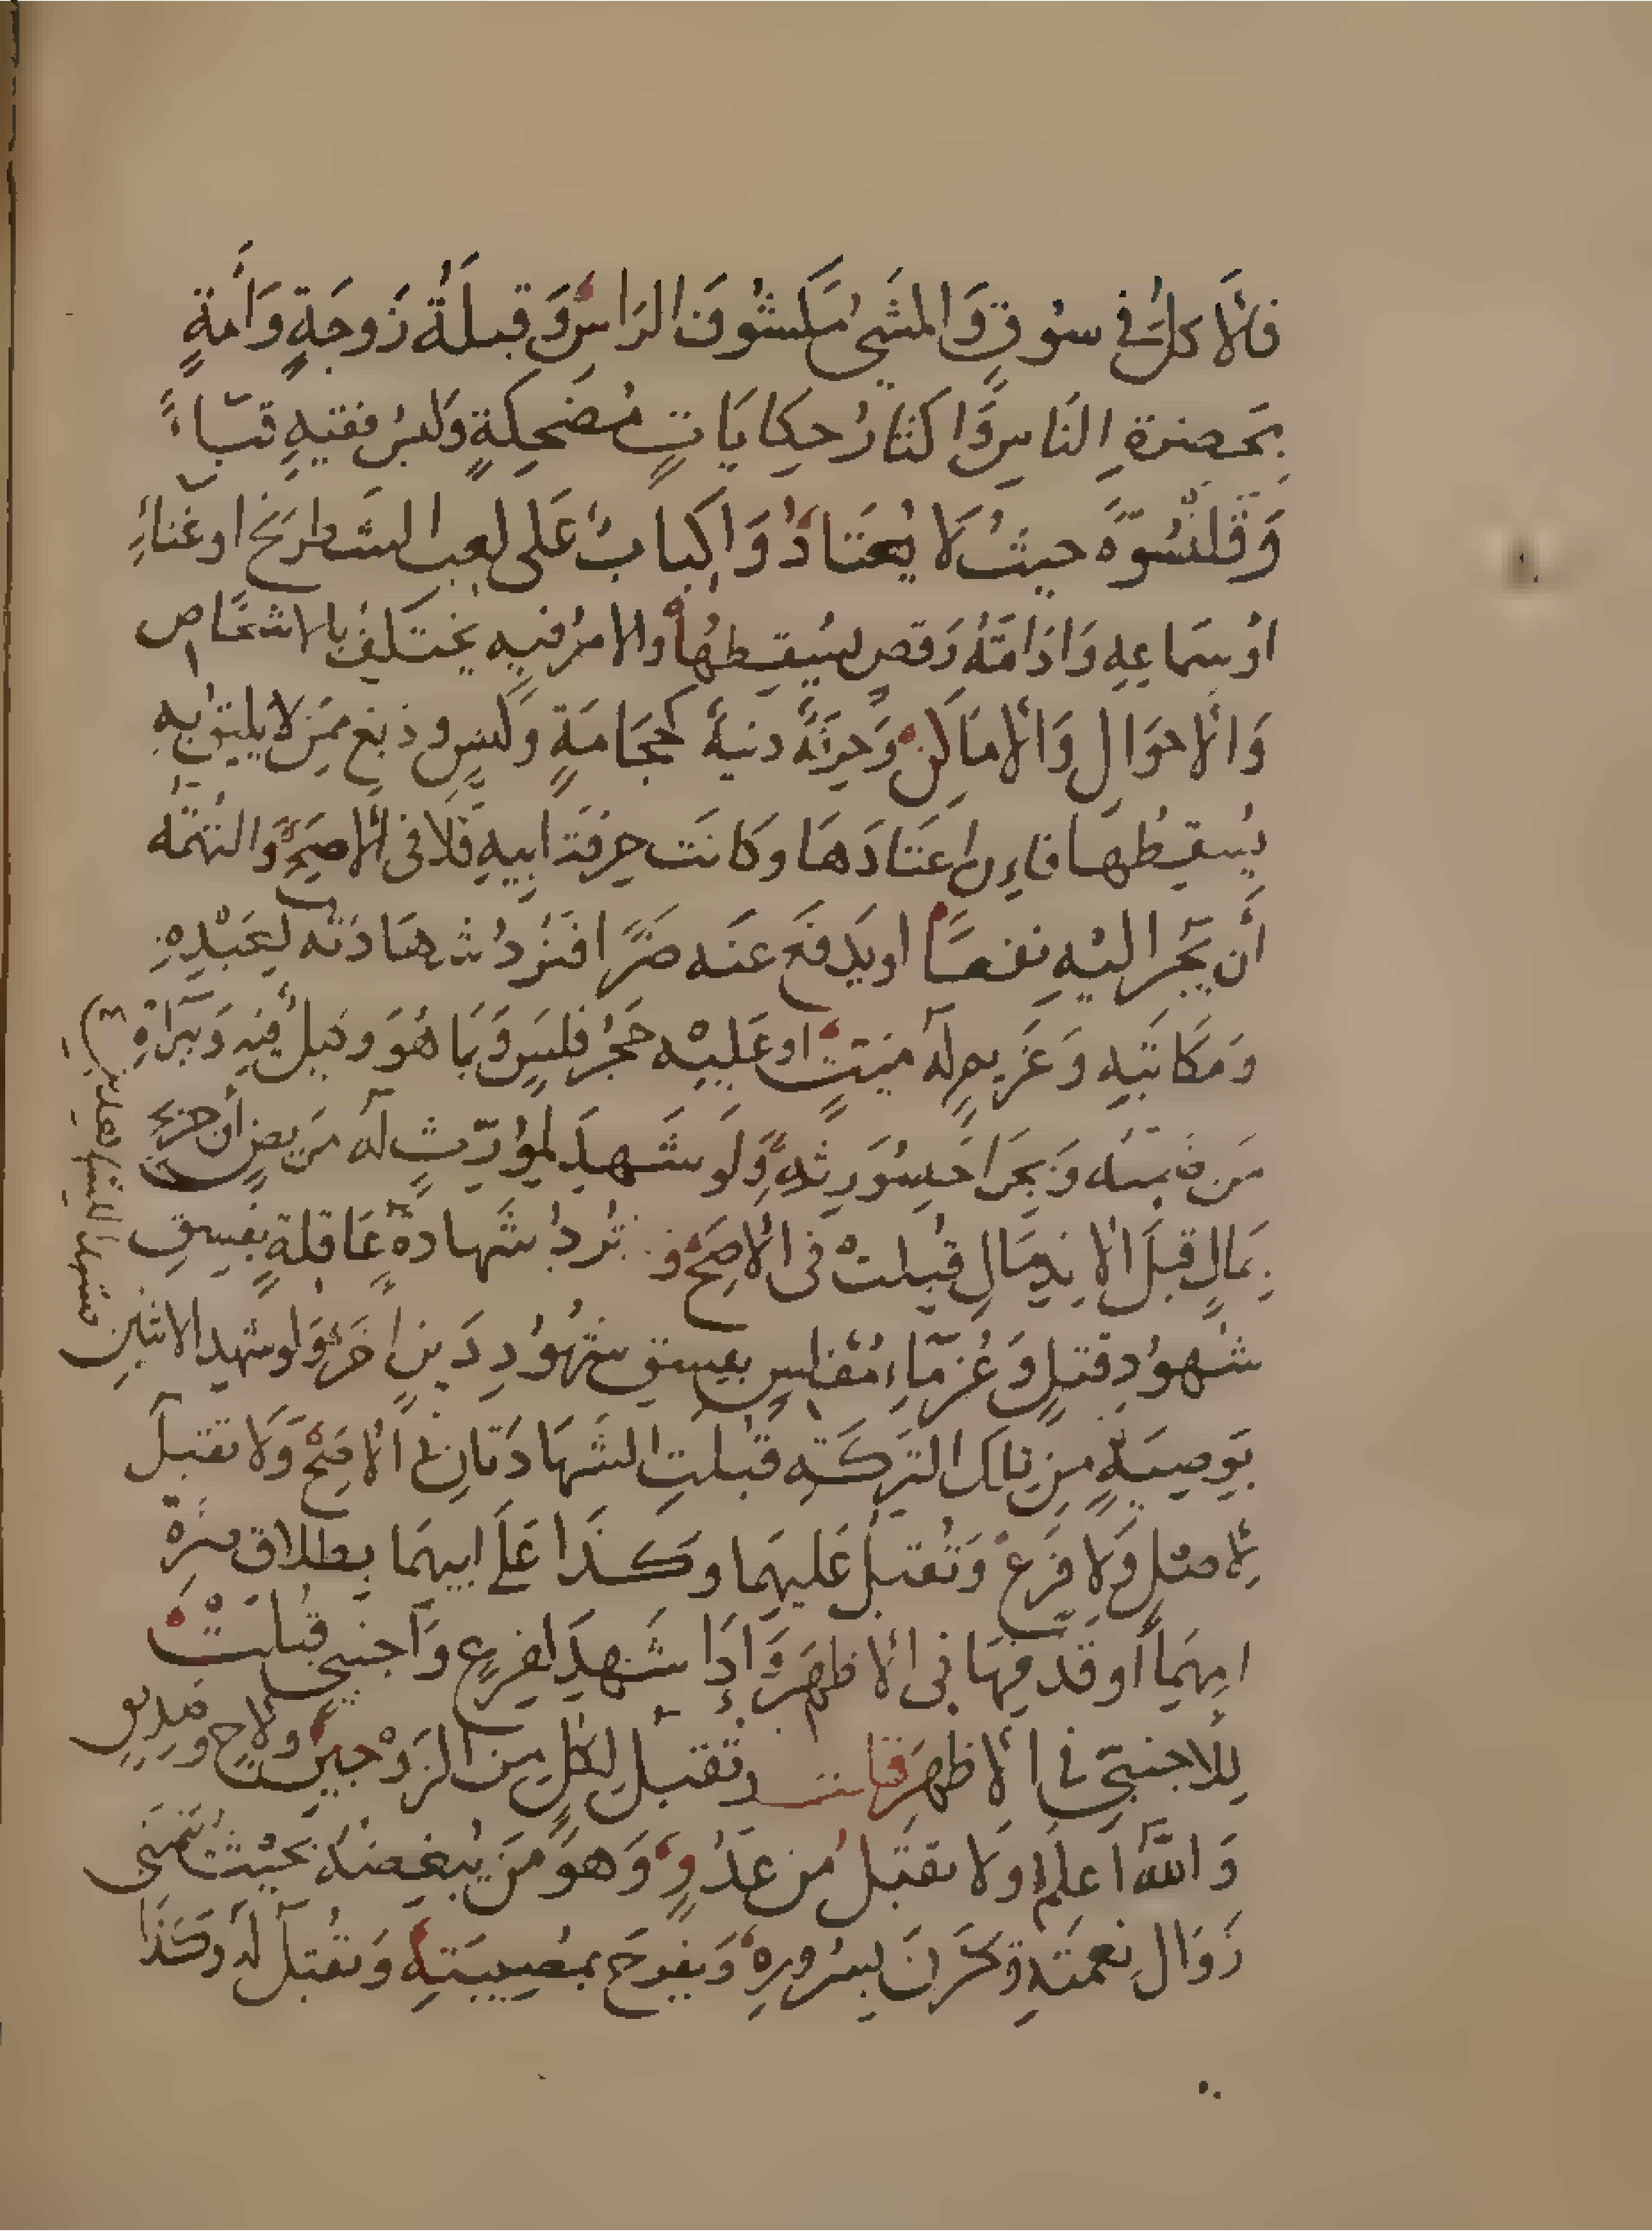 فالاكل في سوق والمشي مكشوف الراس وقبلة زوجة وامة
بحضرة الناس واكثار حكايات مضحكة ولبس فقيه قباء
وقلنسوة حيث لا يعتاد واكباب على لعب الشطرنج او غناء
او سماعه وادامة رقص يسقطها والامر فيه يختلف بالاشخاص
والاحوال والاماكن وحرفة دنية كحجامة وكنس ودبغ ممن لا يليق به
يسقطها فاءن اعتادها وكانت حرفة ابيه فلا في الاصح والتهمة
أن يجر اليه نفعا او يدفع عنه ضرا فترد شهادته لعبده
ومكاتبه وغريم له ميت او عليه حجر فلس وبما هو وكيل فيه وببراة
من ضمنه وبجراحة مورثه ولو شهد لمورث له مريض
بمال قبل الاندمال قبلت في الاصح وترد شهادة عاقلة بفسق
شهود قتل وغرماء مفلس بفسق شهود دين اخر ولو شهد الاثنين
بوصية من تلك التركة قبلت الشهادتان في الاصح ولا تقبل
لاصل ولا فرع وتقبل عليهما وكذا على ابيهما بطلاق ضرة
امهما أو قذفها في الاظهر واذا شهد لفرع واجنبي قبلت
للاجنبي في الاظهر قلت وتقبل لكل من الزوجين ولاخ وصديق
والله اعلم ولا تقبل من عدو وهو من يبغضه بحيث يتمنى
زوال نعمته ويحزن بسروره ويفرح بمصيبته وتقبل له وكذا